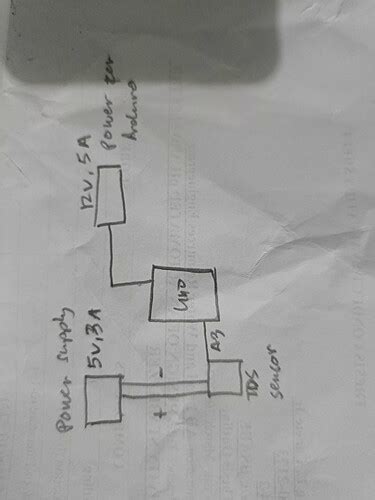 Power supply
5V, 3A
+
-
12V, 5A
Power for
Arduino
UNO
A3
TDS
sensor